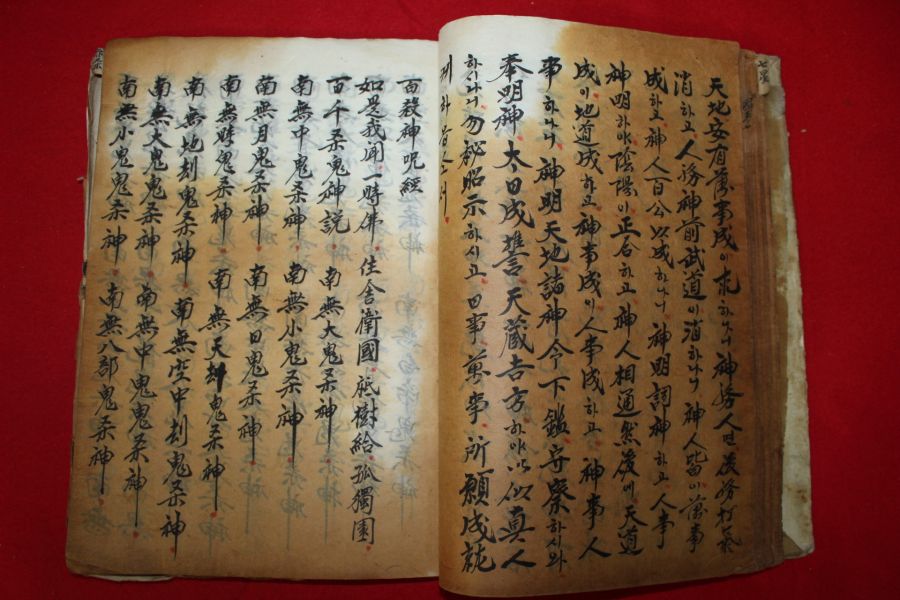 天地安有萬事成이 하나니 神勝人
消하고 人勝神前武道이 消하나니 神人皆이 萬事
成하고 神人百公以成하나니 神明調神하고 人事
神明하야 陰陽이 正合하고 神人相通然後에 天道
成이 地道成하고 神事成이 人事成하고 神事人
事하나니 神明天地諸神今下鑑 察하시와
奉明神 太日成誓 天藏吉方하야 以似眞人
하시나니 勿秘昭示하시고 曰事萬事 所願成就
百殺神呪經
如是我聞 一時佛 住舍衛國 祗樹給孤獨園
百千杀鬼神説 南無大鬼杀神
南無中鬼杀神 南無小鬼杀神
南無月鬼杀神 南無日鬼杀神
南無時鬼杀神 南無天刦鬼杀神
南無地刦鬼杀神 南無空中刦鬼杀神
南無大鬼鬼杀神 南無中鬼鬼杀神
南無小鬼鬼杀神 南無八部鬼杀神